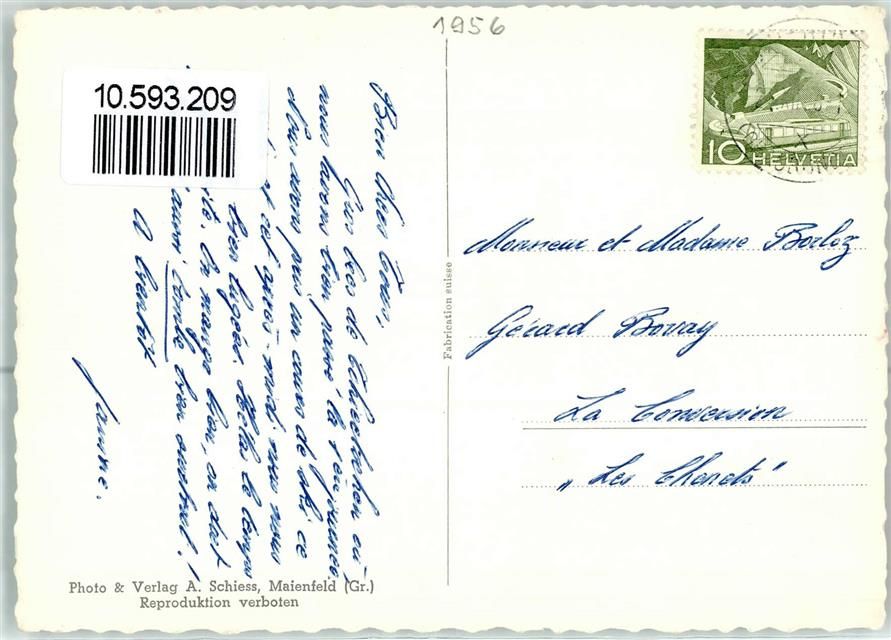 1956
10.593.209
10 HELVETIA
Bien chers Tous,
Gros becs de où
nous avons bien passé la 1ère journée.
Nous avons pris un cours de ski ce
cet après-midi nous nous
bien logées. Hélas le temps
On mange bien, on dort
aussi tombe bien
A bientôt
Janine.
Fabrication suisse
Monsieur et Madame Borloz
Gérard Bovay
La Conversion
"Les Chenets"
Photo & Verlag A. Schiess, Maienfeld (Gr.)
Reproduktion verboten